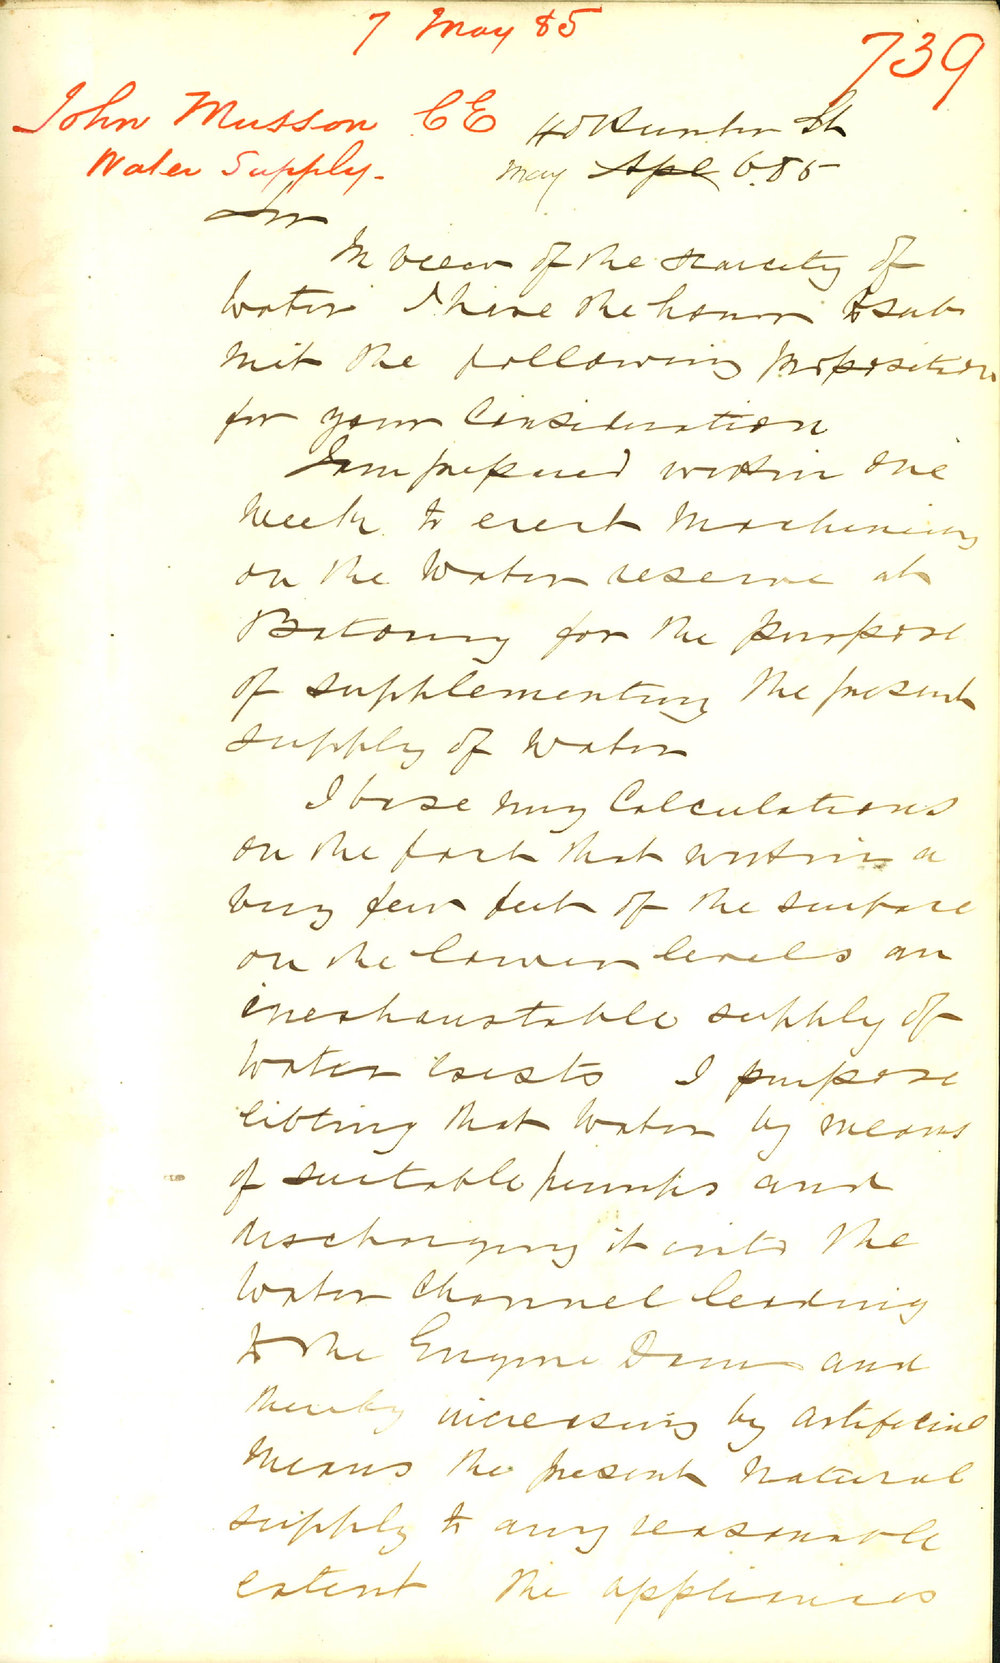 7 May 85
739
John Musson CE
Water Supply.
40 Hunter St
May Apl 6.85
Sir
In view of the scarcity of
Water I have the honor to sub
mit the following proposition
for your Consideration
I am prepared within one
Week to erect Machinery
on the Water reserve at
Botany for the purpose
of supplementing the present
supply of Water
I base my Calculations
on the fact that within a
very few feet of the surface
on the lower levels an
inexhaustable supply of
Water exists I purpose
lifting that Water by means
of suitable pumps and
discharging it into the
Water Channel leading
to the Engine Dam and
thereby increasing by artificial
Means the present Natural
supply to any reasonable
extent the appliances